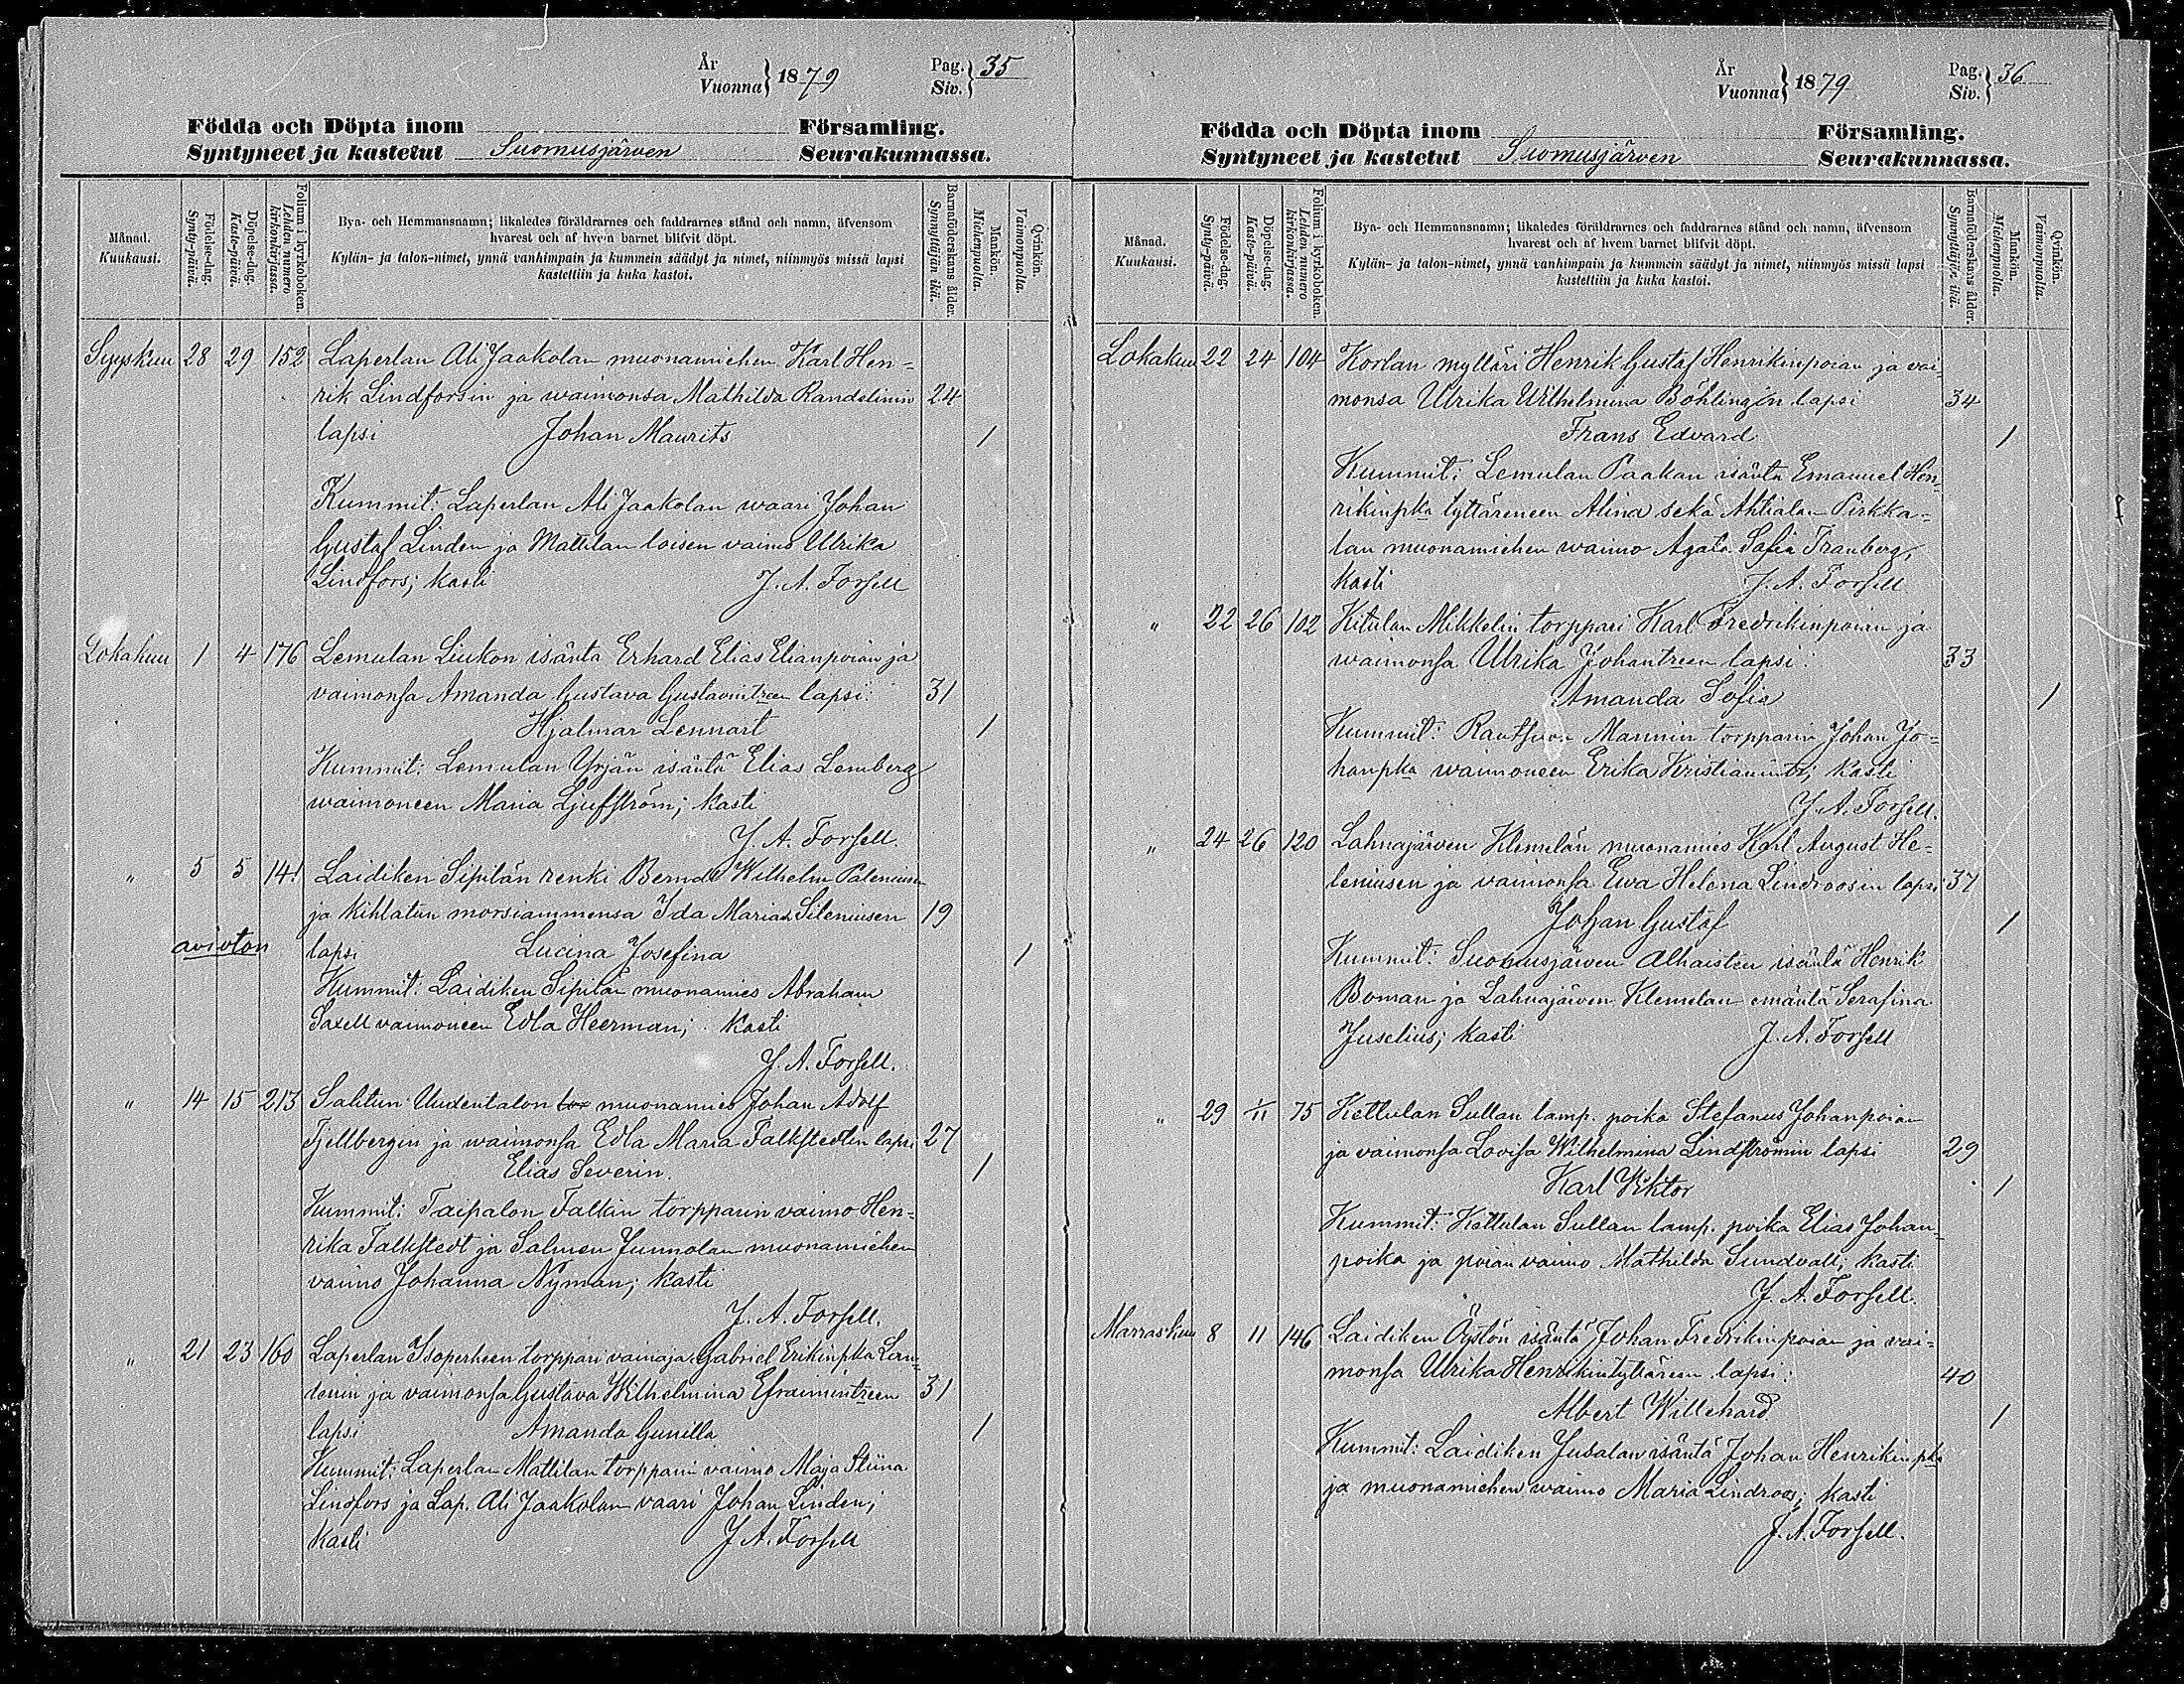 År
Vuonna } 1879
Pag.
Siv. } 35
Födda och Döpta inom Församling.
Syntyneet ja kastetut Suomusjärven Seurakunnassa.
Månad.
Kuukausi.
Födelse-dag.
Synty-päivä.
Döpelse-dag.
Kaste-päivä.
Folium i kyrkoboken.
Lehden numero kirkonkirjassa.
Bya- och Hemmansnamn; likaledes föräldrarnes och faddrarnes stånd och namn, äfvensom
hvarest och af hvem barnet blifvit döpt.
Kylän- ja talon-nimet, ynnä vanhimpain ja kummein säädyt ja nimet, niinmyös missä lapsi
kastettiin ja kuka kastoi.
Barnaföderskans ålder.
Synnyttäjän ikä.
Mankön.
Miehenpuolta.
Qvinkön.
Vaimonpuolta.
Syyskuu 28 29 152 Laperlan Ali Jaakolan muonamiehen Karl Hen=
rik Lindforsin ja waimonsa Mathilda Randelinin 24
lapsi Johan Maurits 1
Kummit: Laperlan Ali Jaakolan waari Johan
Gustaf Linden ja Mattilan loisen vaimo Ulrika
Lindfors; kasti J. A. Forsell
Lokakuu 1 4 176 Lemulan Liukon isäntä Erhard Elias Elianpoian ja
vaimonsa Amanda Gustava Gustavintreen lapsi: 31
Hjalmar Lennart 1
Kummit: Lemulan Yrjän isäntä Elias Lemberg
waimoneen Maria Ljufström; kasti
J. A. Forsell.
" 5 5 141 Laidiken Sipilän renki Bernd Wilhelm Paleniusen
ja kihlatun morsiammensa Ida Maria Sileniusen 19
avioton lapsi Lucina Josefina 1
Kummit: Laidiken Sipilän muonamies Abraham
Saxell vaimoneen Edla Heerman; kasti
J. A. Forsell.
" 14 15 213 Salitun Uudentalon tor muonamies Johan Adolf
Fjellbergin ja waimonsa Edla Maria Falkstedtin lapsi 27
Elias Severin. 1
Kummit: Taipalon Falkin torpparin vaimo Hen=
rika Falkstedt ja Salmen Junnolan muonamiehen
vaimo Johanna Nyman; kasti
J. A. Forsell.
" 21 23 160 Laperlan Isoperheen torppari vainaja Gabriel Erikinpka Lin=
denin ja vaimonsa Gustava Wilhelmina Efraimintreen 31
lapsi Amanda Gunilla 1
Kummit: Laperlan Mattilan torpparin vaimo Maja Stiina
Lindfors ja Lap. Ali Jaakolan vaari Johan Linden;
kasti J. A. Forsell
År
Vuonna } 1879
Pag.
Siv. } 36
Födda och Döpta inom Församling.
Syntyneet ja kastetut Suomusjärven Seurakunnassa.
Månad.
Kuukausi.
Födelse-dag.
Synty-päivä.
Döpelse-dag.
Kaste-päivä.
Folium i kyrkoboken.
Lehden numero kirkonkirjassa.
Bya- och Hemmansnamn; likaledes föräldrarnes och faddrarnes stånd och namn, äfvensom
hvarest och af hvem barnet blifvit döpt.
Kylän- ja talon-nimet, ynnä vanhimpain ja kummein säädyt ja nimet, niinmyös missä lapsi
kastettiin ja kuka kastoi.
Barnaföderskans ålder.
Synnyttäjän ikä.
Mankön.
Miehenpuolta.
Qvinkön.
Vaimonpuolta.
Lokakuu 22 24 104 Korlan mylläri Henrik Gustaf Henrikinpoian ja vai
monsa Ulrika Wilhelmina Böhlingin lapsi 34
Frans Edvard 1
Kummit: Lemulan Paakan isäntä Emanuel Hen
rikinpka tyttäreneen Alina sekä Ahtialan Pirkka=
lan muonamiehen waimo Agata Sofia Tranberg,
kasti J. A. Forsell
" 22 26 102 Kitulan Mikkelin torppari Karl Fredrikinpoian ja
waimonsa Ulrika Johantreen lapsi: 33
Amanda Sofia 1
Kummit: Mannin torpparin Johan Jo=
hanpka waimoneen Erika Kristianintr; kasti
J. A. Forsell.
" 24 26 120 Lahnajärven Klemelän muonamies Karl August He=
leniusen ja vaimonsa Ewa Helena Lindroosin lapsi 37
Johan Gustaf 1
Kummit: Suomusjärven Alhaisten isäntä Henrik
Boman ja Lahnajärven Klemelän emäntä Serafina
Juselius; kasti J. A. Forsell
" 29 1/11 75 Kettulan Sullan lamp. poika Stefanus Johanpoian
ja vaimonsa Lovisa Wilhelmina Lindströmin lapsi 29
Karl Viktor 1
Kummit: Kettulan Sullan lamp. poika Elias Johan
poika ja poian vaimo Mathilda Sundvall; kasti
J. A. Forsell.
Marraskuu 8 11 146 Laidiken Öystön isäntä Johan Fredrikinpoian ja vai=
monsa Ulrika Henrikintyttäreen lapsi: 40
Albert Willehard 1
Kummit: Laidiken Jusalan isäntä Johan Henrikinpka
ja muonamiehen waimo Maria Lindroos; kasti
J. A. Forsell.